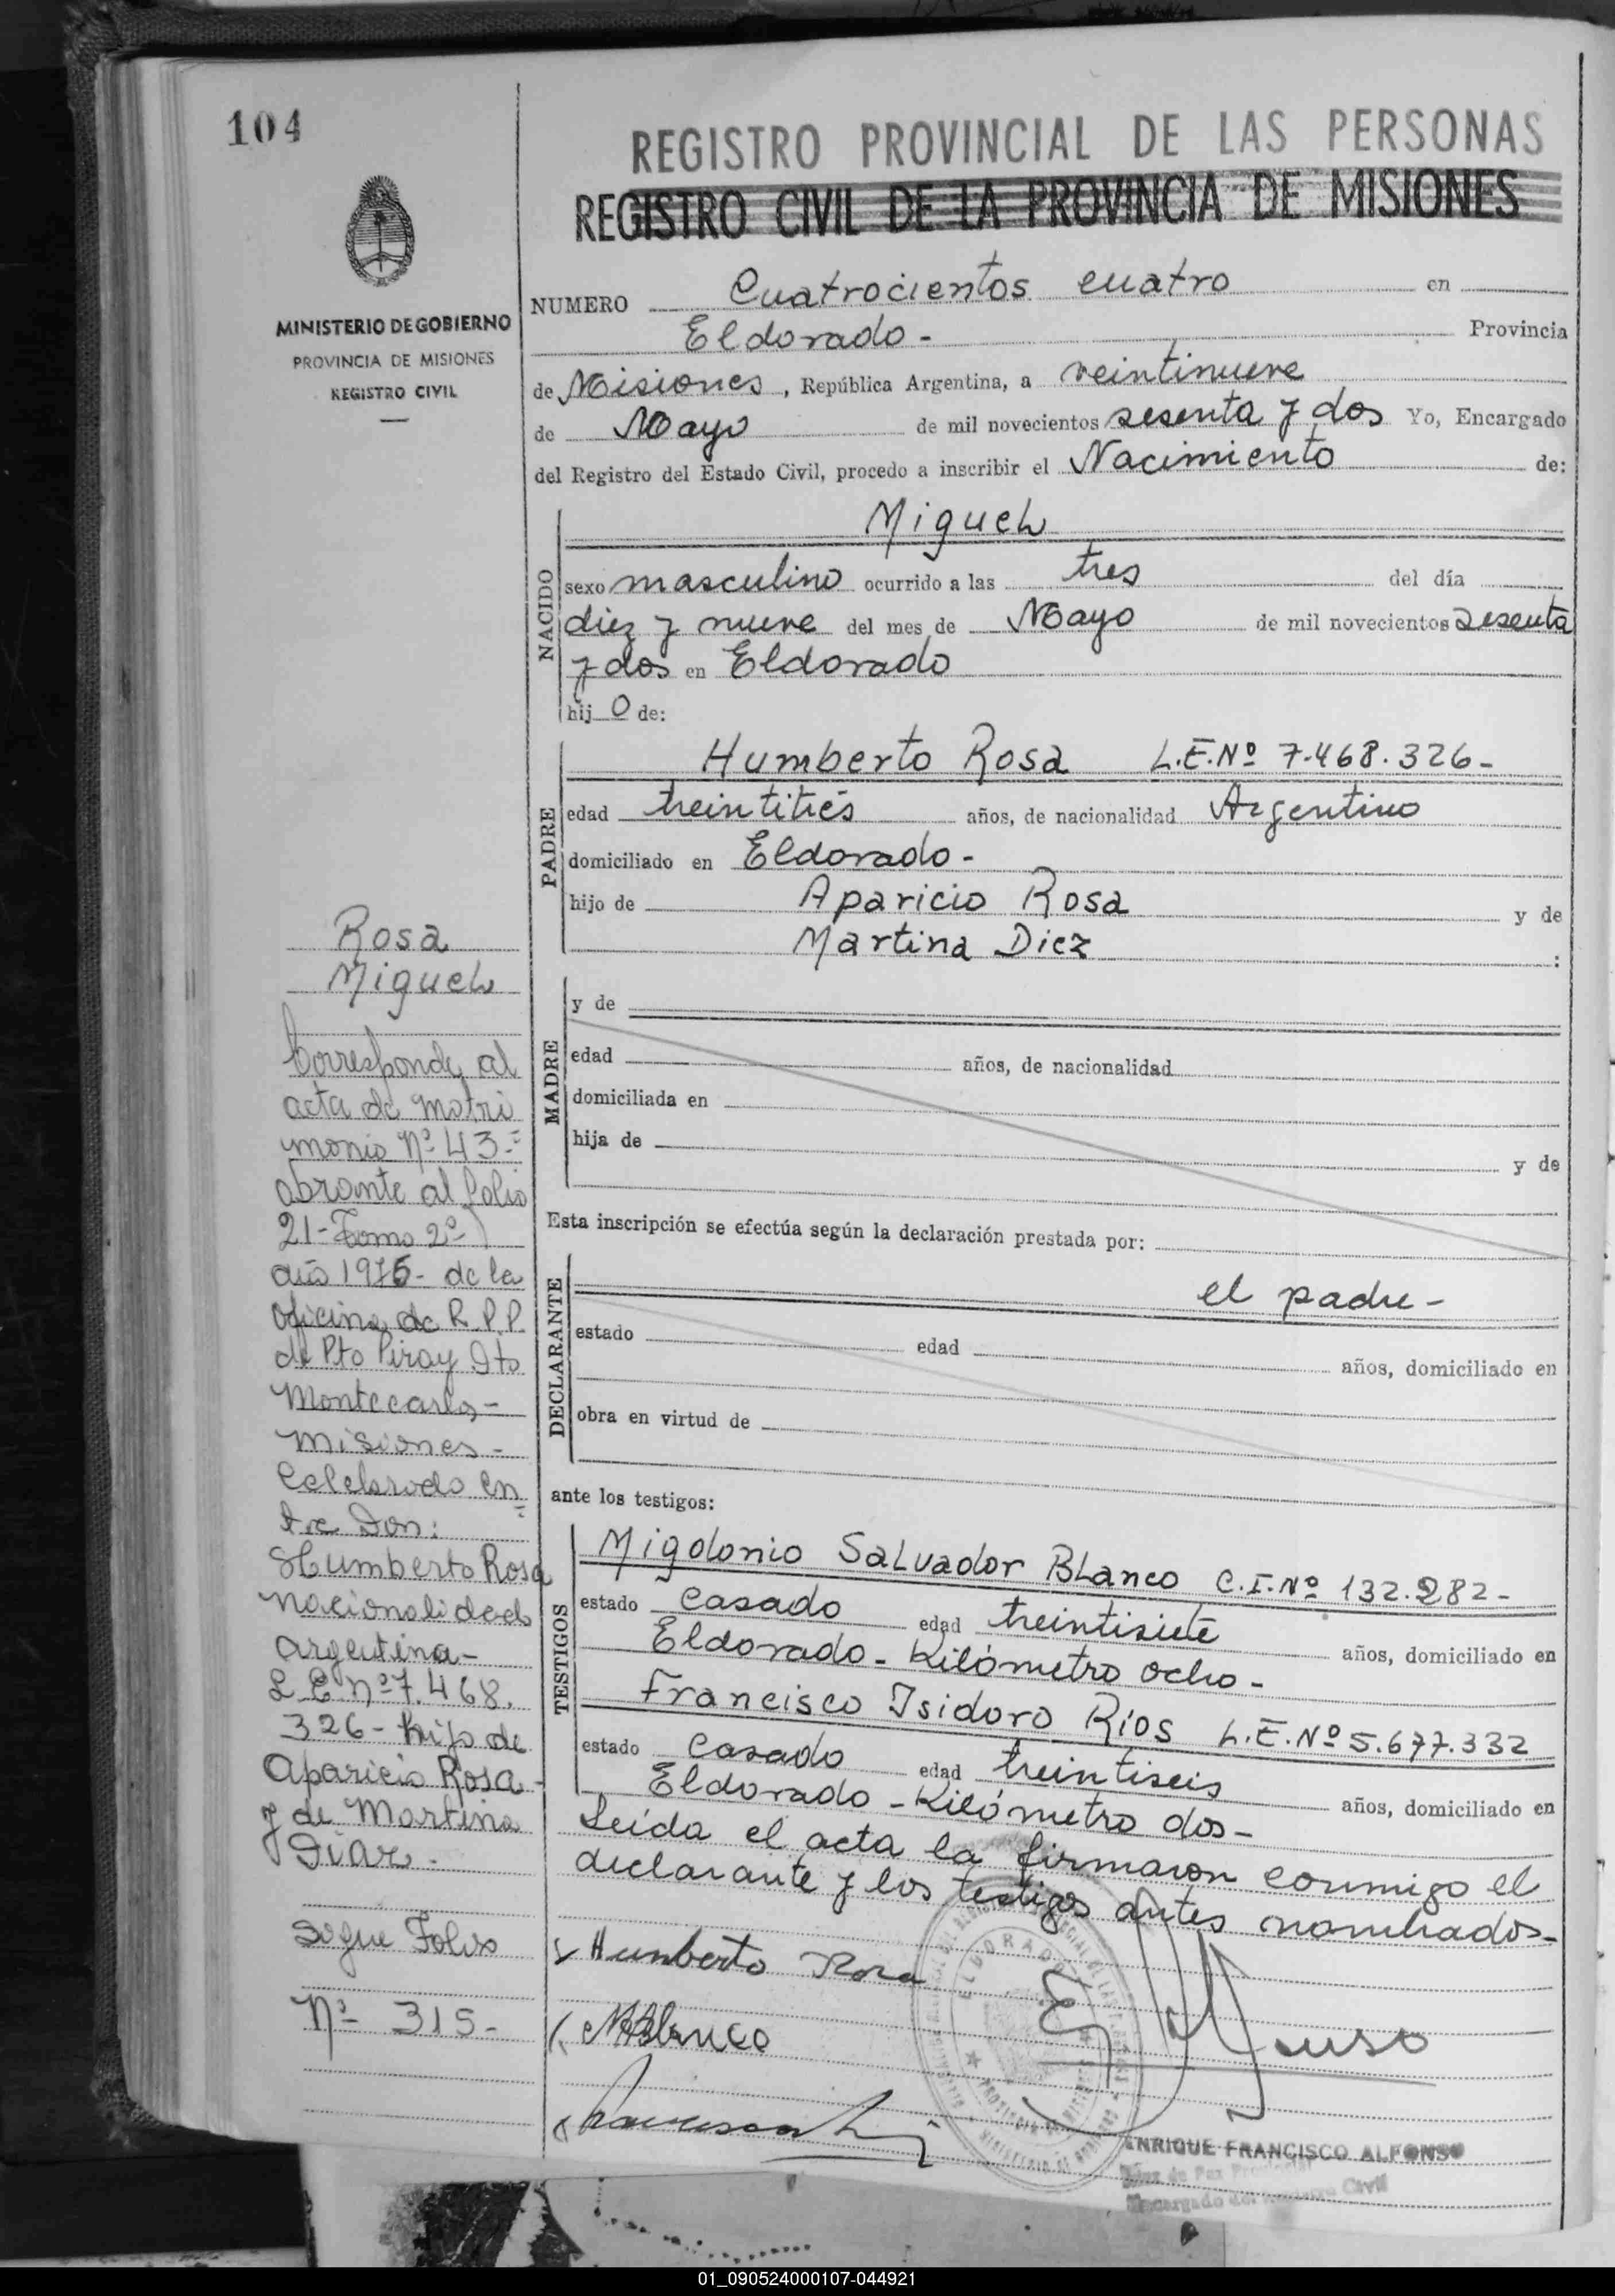 104
MINISTERIO DE GOBIERNO
PROVINCIA DE MISIONES
REGISTRO CIVIL
REGISTRO PROVINCIAL DE LAS PERSONAS
REGISTRO CIVIL DE LA PROVINCIA DE MISIONES
NUMERO Cuatrocientos cuatro en
Eldorado - Provincia
de Misiones, República Argentina, a veintinueve
de Mayo de mil novecientos sesenta y dos Yo, Encargado
del Registro del Estado Civil, procedo a inscribir el Nacimiento de:
NACIDO
Miguel
sexo masculino ocurrido a las tres del día
diez y nueve del mes de Mayo de mil novecientos sesenta
y dos en Eldorado
hijo de:
PADRE
Humberto Rosa L.E.Nº 7.468.326-
edad treintitrés años, de nacionalidad Argentino
domiciliado en Eldorado-
hijo de Aparicio Rosa y de
Martina Diez :
MADRE
y de
edad años, de nacionalidad
domiciliada en
hija de y de
Esta inscripción se efectúa según la declaración prestada por:
DECLARANTE
el padre-
estado edad años, domiciliado en
obra en virtud de
ante los testigos:
TESTIGOS
Migdonio Salvador Blanco C.I.Nº 132.282-
estado Casado edad treintisiete años, domiciliado en
Eldorado- Kilómetro ocho-
Francisco Isidoro Rios L.E.Nº 5.677.332
estado Casado edad treintiseis años, domiciliado en
Eldorado - Kilómetro dos-
Leída el acta la firmaron conmigo el
declarante y los testigos antes nombrados-
Humberto Rosa
MBlanco
ELDORADO
PROVINCIA DE MISIONES
MINISTERIO DE GOBIERNO
ENRIQUE FRANCISCO ALFONSO
Juez de Paz Provincial
Encargado del Registro Civil
Rosa
Miguel
Corresponde al
acta de matri
monio Nº 43-
obrante al folio
21-Tomo 2º
año 1976- de la
oficina de R.P.P.
de Pto Piray Dto
Montecarlo-
Misiones-
Celebrado en
tre Don:
Humberto Rosa
nacionalidad
argentina-
L E nº 7.468.
326- hijo de
Aparicio Rosa-
y de Martina
Diaz.
Sigue Folio
Nº 315-
01_090524000107-044921